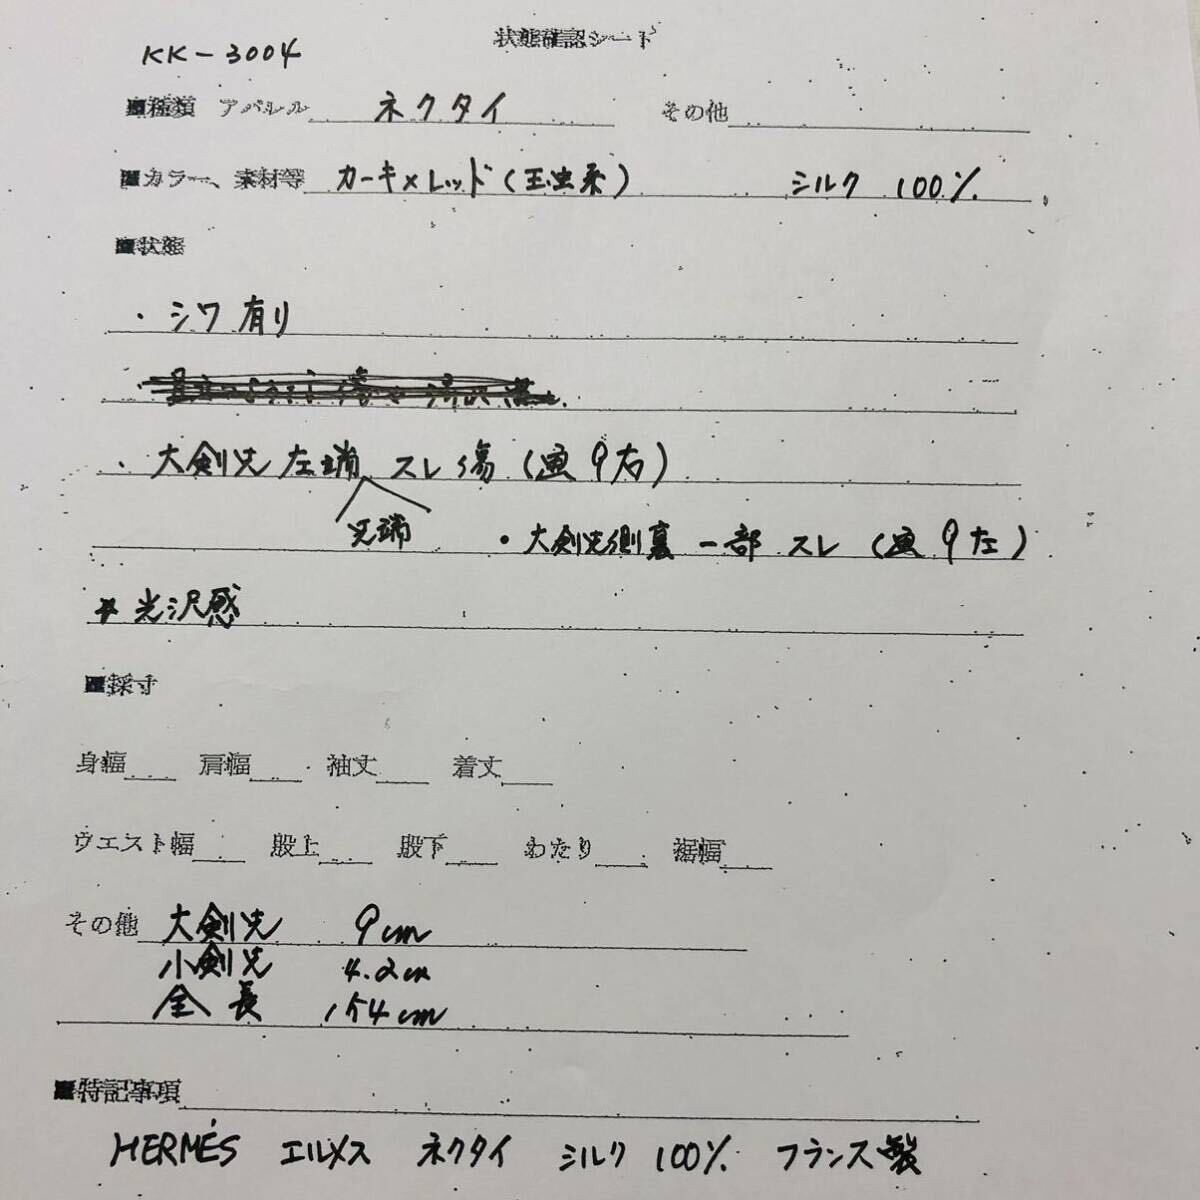 状態確認シート
KK-3004
■種類 アパレル ネクタイ その他
■カラー、素材等 カーキ×レッド(玉虫系) シルク 100%
■状態
・シワ有り
・大剣先 左端 スレ傷 (画9右)
先端 ・大剣先側裏 一部 スレ (画9左)
* 光沢感
■採寸
身幅 肩幅 袖丈 着丈
ウエスト幅 股上 股下 わたり 裾幅
その他 大剣先 9cm
小剣先 4.2cm
全長 154cm
■特記事項
HERMÉS エルメス ネクタイ シルク 100% フランス製